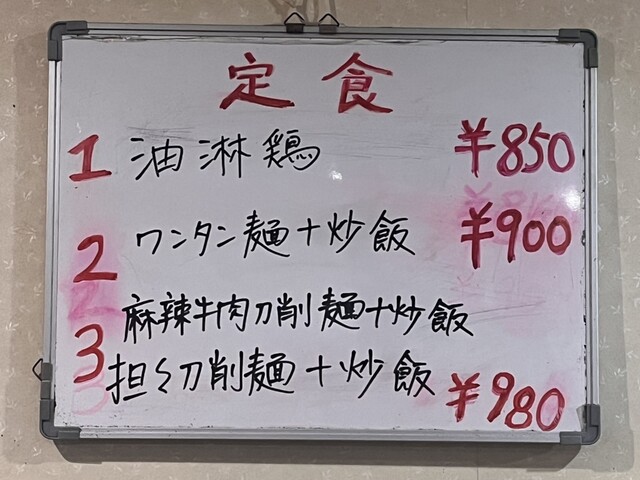 定食
1 油淋鶏 ¥850
2 ワンタン麺+炒飯 ¥900
麻辣牛肉刀削麺+炒飯
3 担々刀削麺+炒飯 ¥980